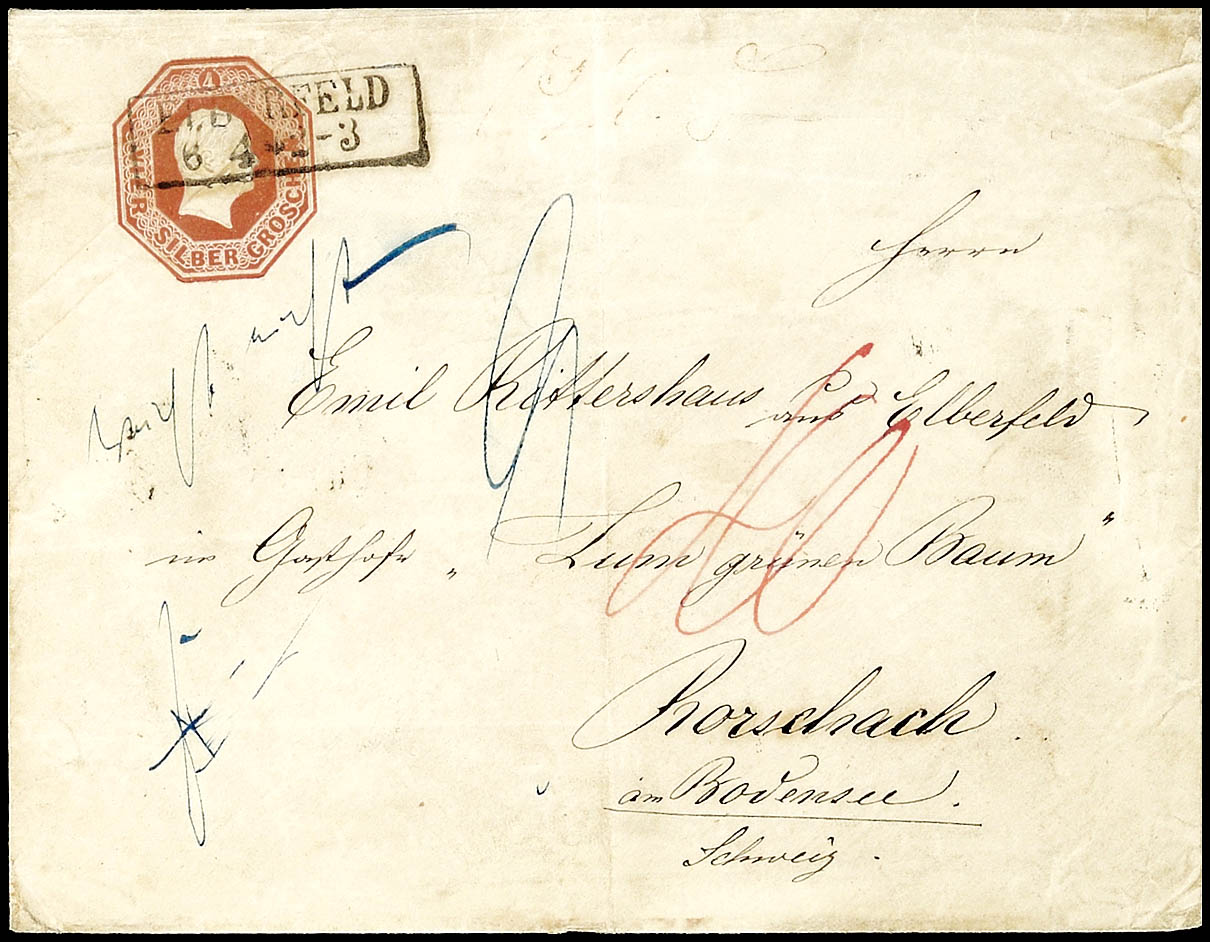 4
VIER SILBER GROSCHEN
ELBERFELD
6 4 -3
Herrn
Emil Rittershaus aus Elberfeld
im Gasthofe „Zum grünen Baum"
Rorschach
am Bodensee.
Schweiz.